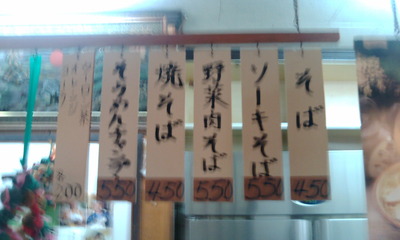 そば
450
ソーキそば
550
野菜肉そば
550
焼そば
450
そうめんチャンプ
550
各200